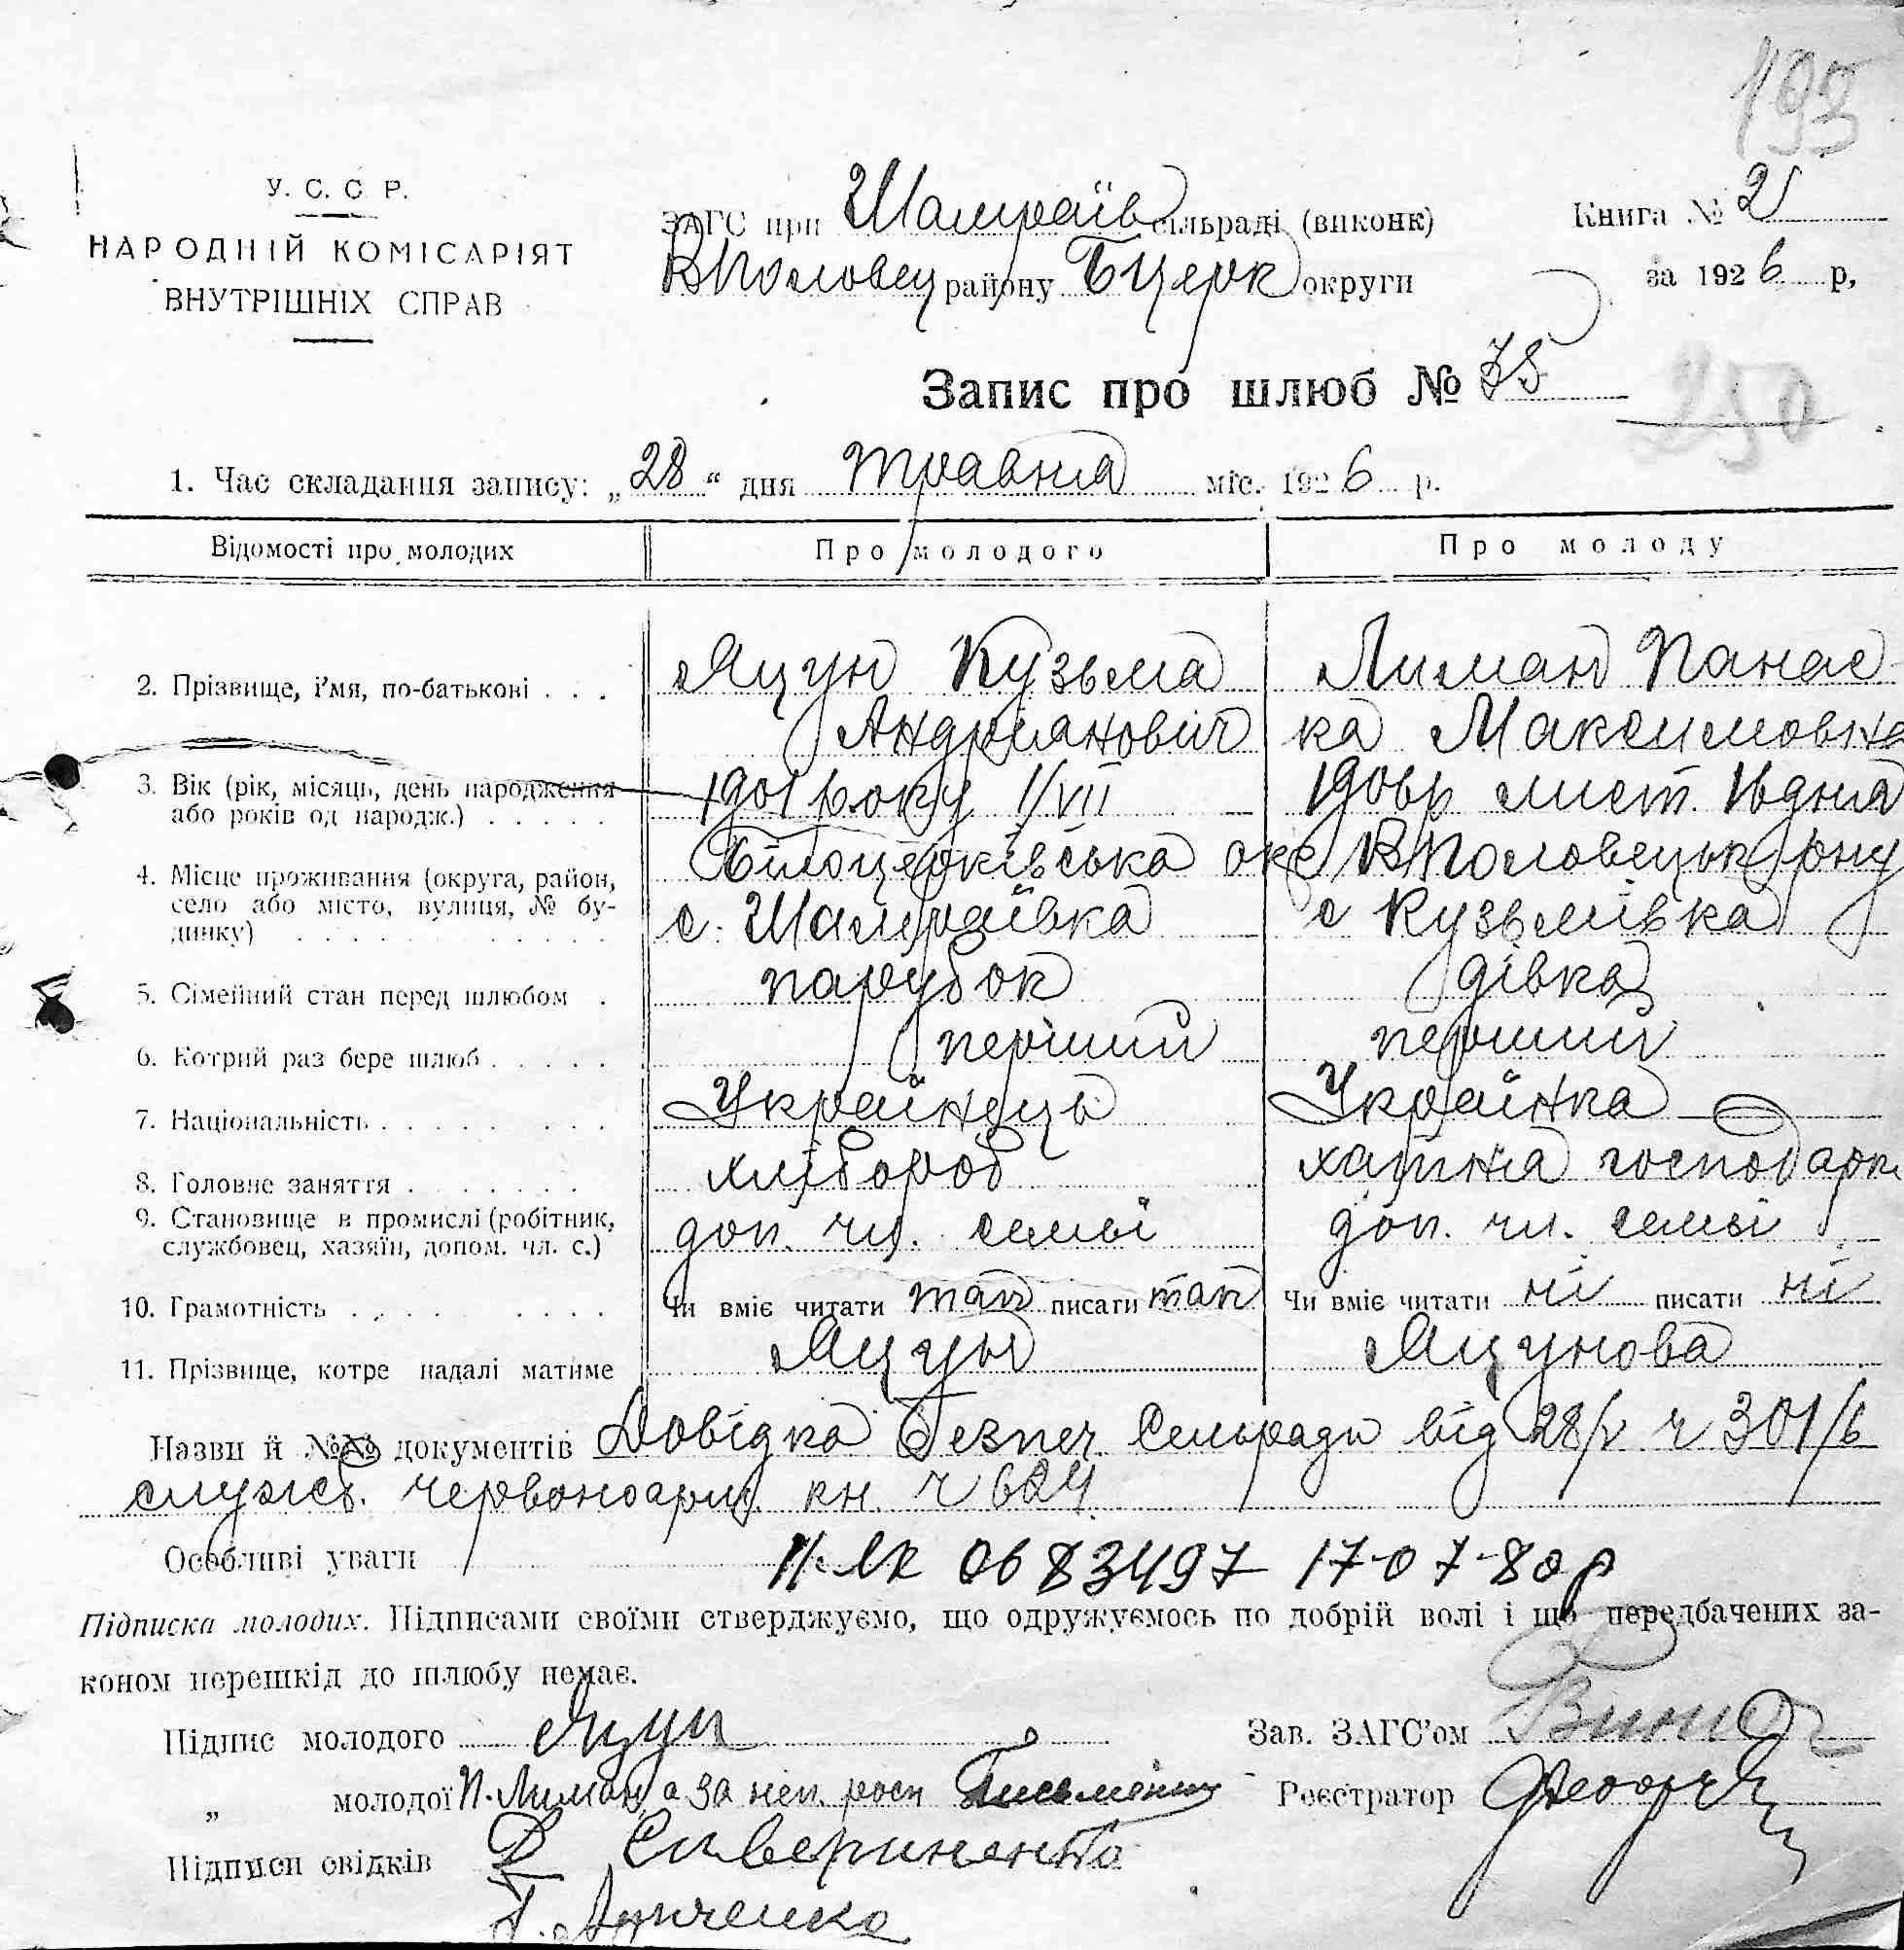 193
У. С. С. Р.
НАРОДНІЙ КОМІСАРІЯТ
ВНУТРІШНІХ СПРАВ
ЗАГС при Шамраїв сільраді (виконк)
ВПоловец району БЦерк округи
Книга № 2
за 1926 р,
Запис про шлюб № 75
250
1. Час складання запису: „28“ дня травня міс. 1926 р.
Відомості про молодих
Про молодого
Про молоду
2. Прізвище, і'мя, по-батькові . . .
Яцун Кузьма
Андріянович
Лиман Панас
ка Максимовна
3. Вік (рік, місяць, день народження
або років од народж.) . . . . .
1901 року 1/VII
190 р лист. дня
4. Місце проживання (округа, район,
село або місто, вулиця, № бу-
динку) . . . . . . . . . .
Білоцерківська окр ВПоловецьк рну
с. Шамраївка
с Кузьмівка
5. Сімейний стан перед шлюбом .
парубок
дівка
6. Котрий раз бере шлюб . . . . .
перший
перший
7. Національність . . . . . . . .
Українець
Українка
8. Головне заняття . . . . . . .
хлібороб
хатня господарк
9. Становище в промислі (робітник,
службовец, хазяїн, допом. чл. с.)
доп. чл. семьї
доп. чл. семьї
10. Грамотність . . . . . . . .
Чи вміє читати так писати так
Чи вміє читати ні писати ні
11. Прізвище, котре надалі матиме
Яцун
Яцунова
Назви й №№ документів Довідка Безпеч. Сельради від 28/V ч 301/б
служб. червоноарм. кн. ч 624
Особливі уваги
0683497 17-07-80р
Підписка молодих. Підписами своїми стверджуємо, що одружуємось по добрій волі і що передбачених за-
коном перешкід до шлюбу немає.
Підпис молодого Яцун
Зав. ЗАГС'ом
„ молодої П. Лиман, а за неп. росп Письменни
Реєстратор
Підписи свідків Сивериненко